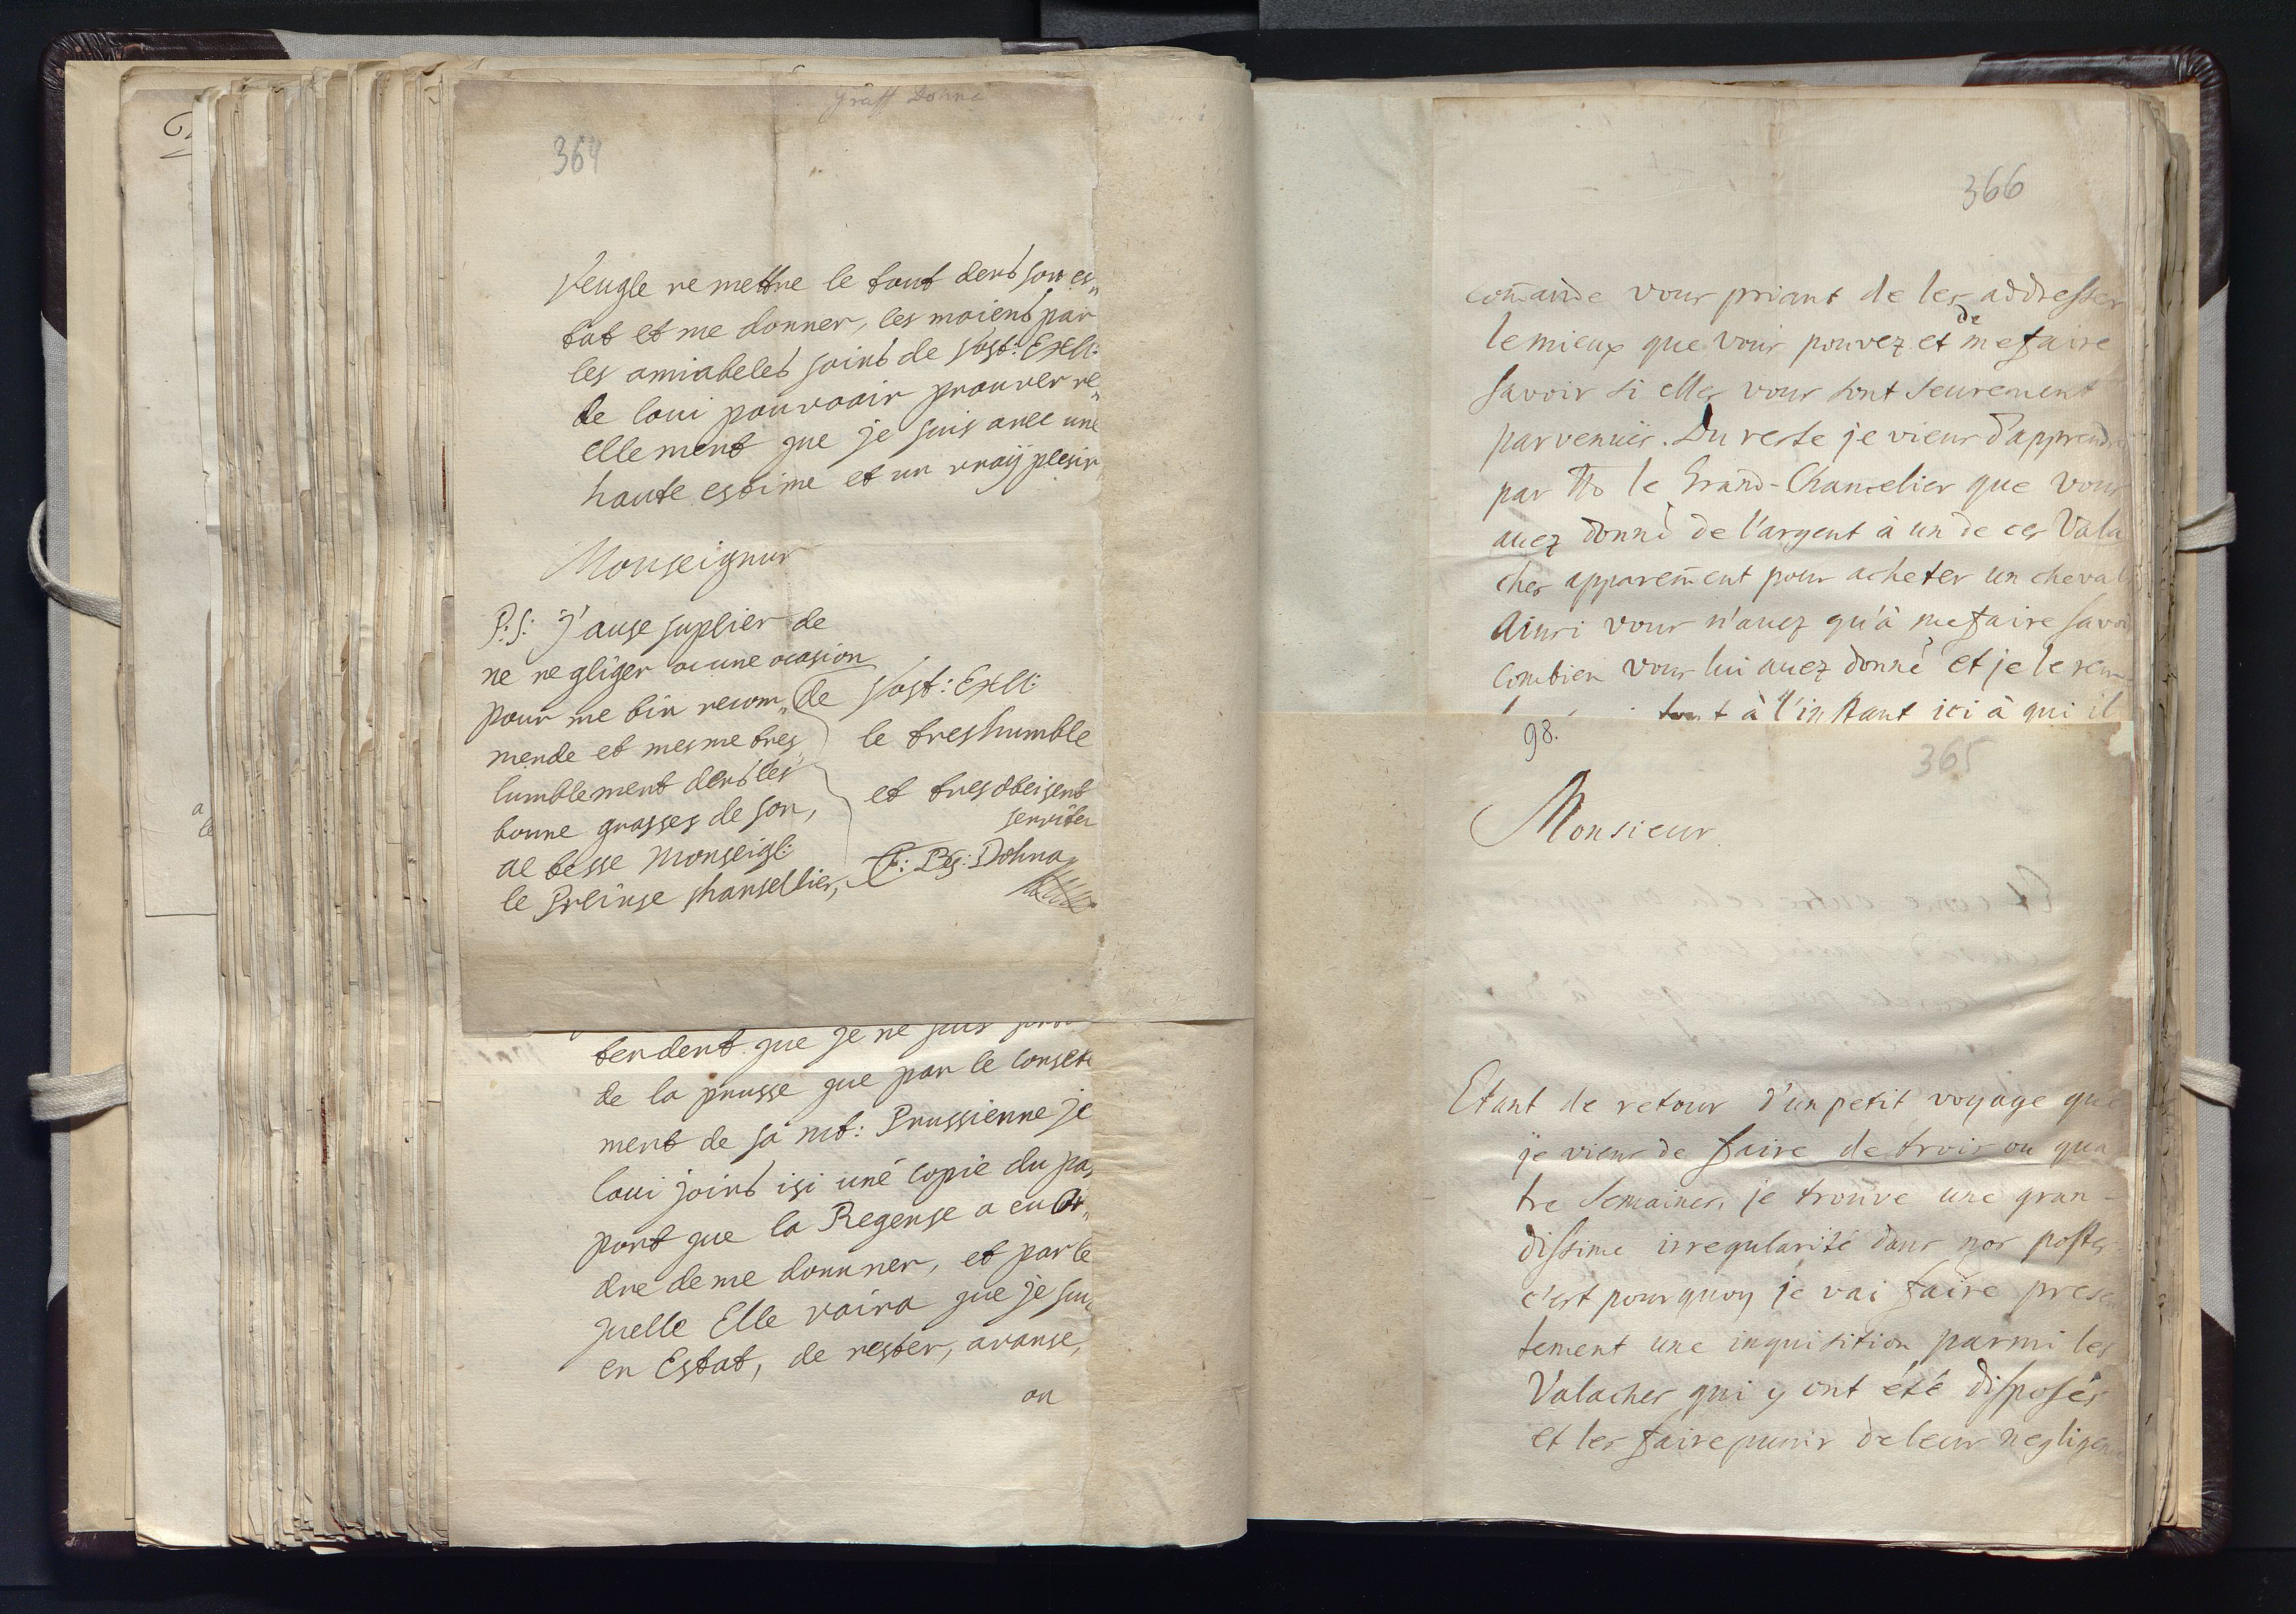 Graff Dohna
364
Veugle remettre le tout dent son es„
tat et me donner, les moient par
les amiabelet soint de Vost: Exll:
de loui pouvoair prouver re„
ellement que je suis avec une
haute estime et un vraÿ plesir
Monseignur
P:S: J'ause suplier de
ne negliger aucune ocasion
pour me bin recom„
mende et mesme tres
lumblement dent les
bonne grasses de son,
al tesse Monseigl:
le Preinse shansellier,
de Vost: Exll:
le treshumble
et tresobeisent
serviter
C: B: Dohna
tendent que je ne suis
de la prusse que par le consete
ment de sa mt: Prussienne je
loui joint isi uné copie du pas
port que la Regense a eu Or„
dre de me donnner, et par le
quelle Elle vaira que je suis
en Estat, de rester, avanse,
ou
366
com̄ande vous priant de les addresser
le mieux que vous pouvez et de me faire
savoir si elles vous sont seurement
parvenuës. Du reste je viens d'apprendre
par Mr le Grand-Chancelier que vous
avez donné de l'argent à un de ces Vala
ches apparem̄ent pour acheter un cheval
Ainsi vous n'avez qu'à me faire savoir
combien vous lui avez donné et je le ren
à l'instant ici à qui il
98.
365
Monsieur
Etant de retour d'un petit voyage que
je viens de faire de trois ou qua
tre Semaines, je trouve une gran-
dissime irregularité dans nos postes
c'est pourquoy je vai faire presen
tement une inquisition parmi les
Valaches qui y ont été disposés
et les faire punir de leur negligence